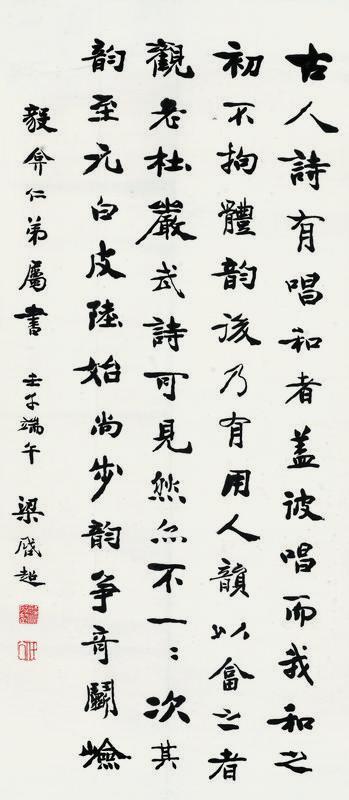 古人詩有唱和者蓋彼唱而我和之
初不拘體韻後乃有用人韻以畣之者
觀老杜嚴武詩可見然亦不一〻次其
韻至元白皮陸始尚步韻爭奇鬭險
毅弇仁弟屬書 壬子端午 梁啟超